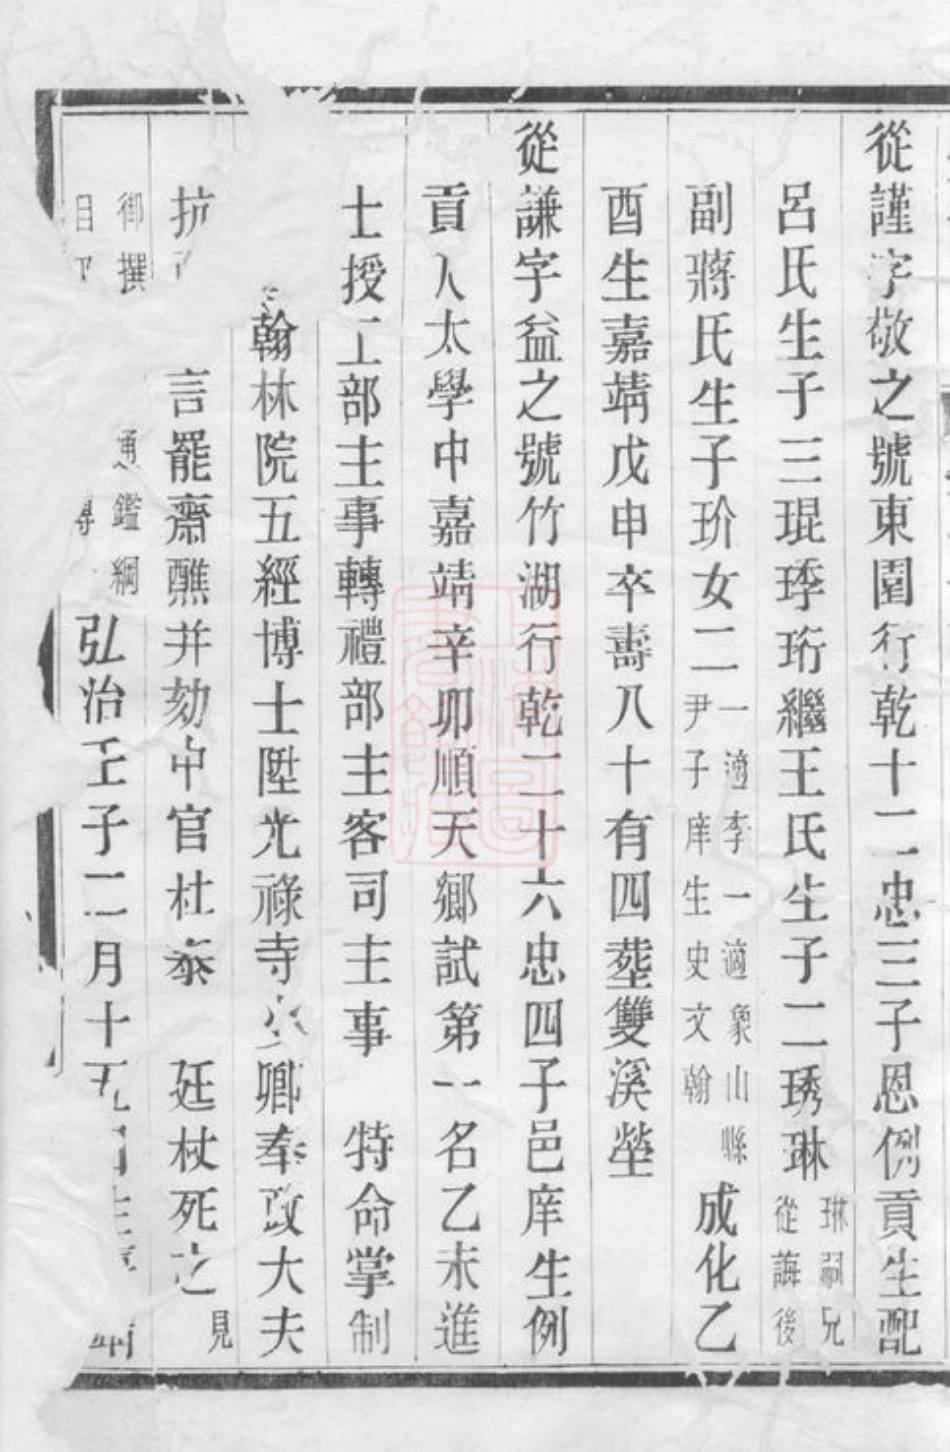 從謹字敬之號東園行乾十二忠三子恩例貢生配
呂氏生子三琨琇珩繼王氏生子二琇琳琳嗣兄從誨後
副蔣氏生子玠女二一適李一適象山縣尹子庠生史文翰成化乙
酉生嘉靖戊申卒壽八十有四塟雙溪塋
從謙字益之號竹湖行乾二十六忠四子邑庠生例
貢入太學中嘉靖辛卯順天鄉試第一名乙未進
士授工部主事轉禮部主客司主事 特命掌制
翰林院五經博士陞光祿寺少卿奉政大夫
抗 言罷齋醮并劾中官杜泰 廷杖死之見
御撰 通鑑綱目 弘治壬子二月十五